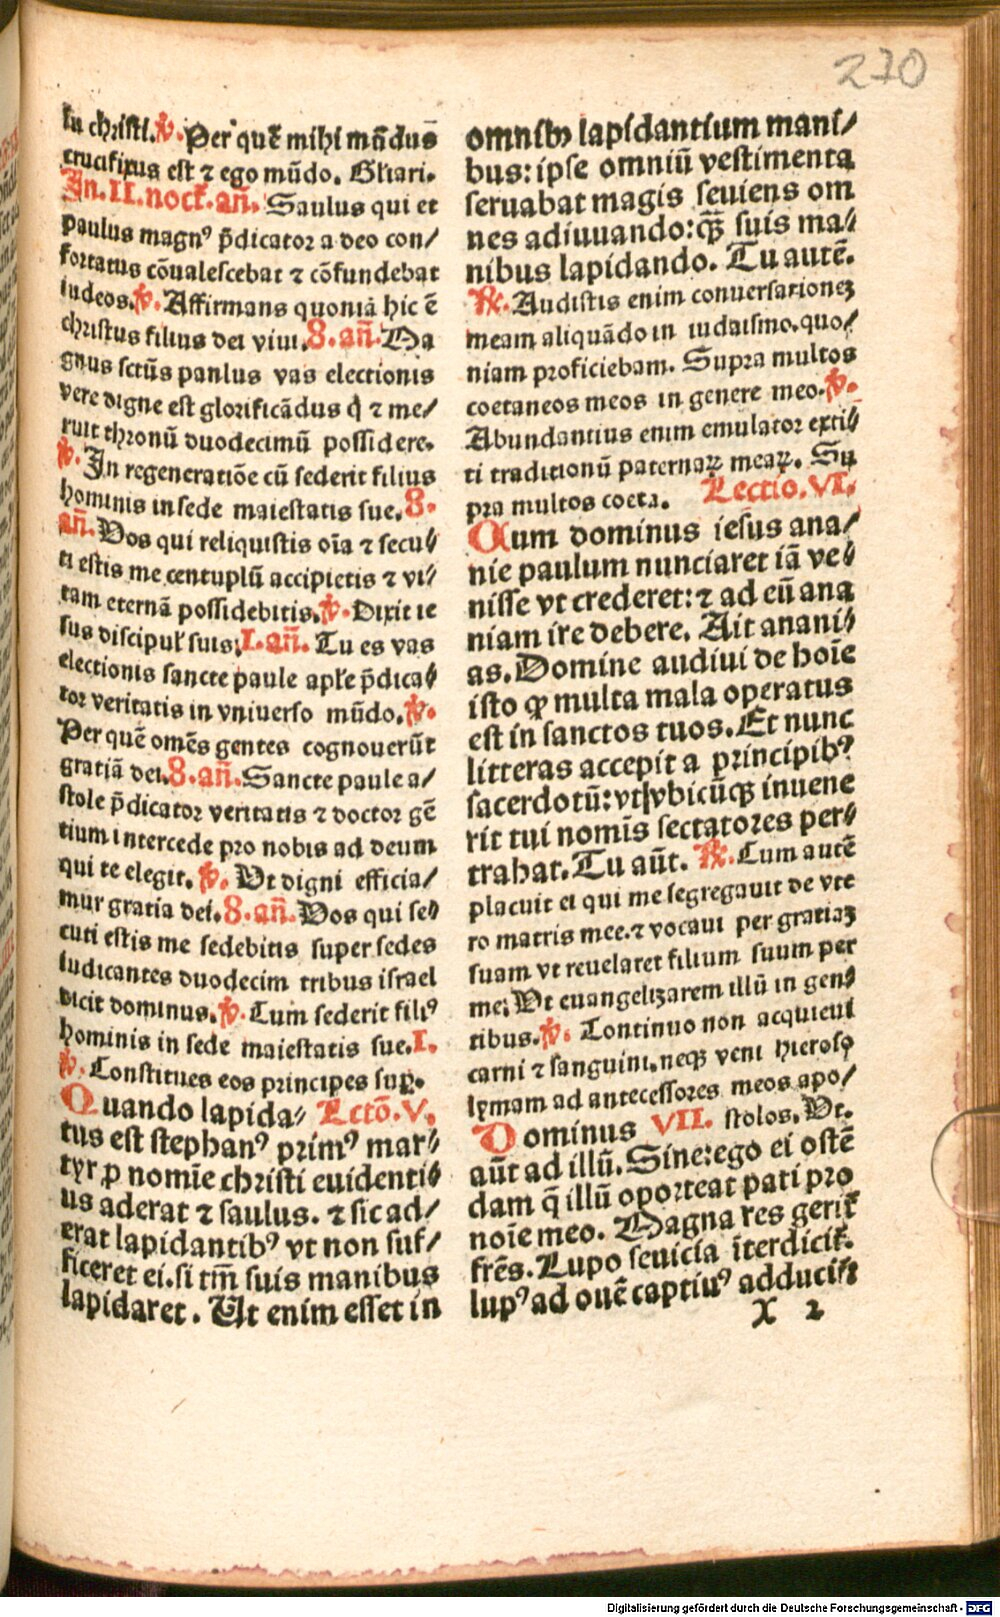 270
su christi. ℣. Per quē mihi mūdus
crucifixus est ⁊ ego mūdo. Głiari.
In. II. nocł. añ. Saulus qui et
paulus magnꝰ p̄dicator a deo con/
fortatus cōualescebat ⁊ cōfundebat
iudeos. ℣. Affirmans quoniā hic ē
christus filius dei viui. 8. añ. Ma
gnus sctūs panlus vas electionis
vere digne est glorificādus q̇ ⁊ me/
ruit thronū duodecimū possidere.
℣. In regeneratiōe cū sederit filius
hominis in sede maiestatis sue. 8.
añ. Vos qui reliquistis oīa ⁊ secu/
ti estis me centuplū accipietis ⁊ vi/
tam eternā possidebitis. ℣. Dixit ie
sus discipuł suis. I. añ. Tu es vas
electionis sancte paule apłe p̄dica/
tor veritatis in vniuerso mūdo. ℣.
Per quē omēs gentes cognouerūt
gratiā dei. 8. añ. Sancte paule a/
stole p̄dicator veritatis ⁊ doctor gē
tium intercede pro nobis ad deum
qui te elegit. ℣. Vt digni efficia/
mur gratia dei. 8. añ. Vos qui se/
cuti estis me sedebitis super sedes
iudicantes duodecim tribus israel
dicit dominus. ℣. Cum sederit filiꝰ
hominis in sede maiestatis sue. I.
℣. Constitues eos principes suꝑ.
Quando lapida/ Lectō. V.
tus est stephanꝰ primꝰ mar/
tyr ꝓ nomīe christi euidenti/
us aderat ⁊ saulus. ⁊ sic ad/
erat lapidantibꝰ vt non suf/
ficeret ei. si tm̄ suis manibus
lapidaret. Ut enim esset in
omnibꝰ lapidantium mani/
bus: ipse omniū vestimenta
seruabat magis seuiens om
nes adiuuando: qȝ̄ suis ma/
nibus lapidando. Tu autē.
℟. Audistis enim conuersationeȝ
meam aliquādo in iudaismo. quo/
niam proficiebam. Supra multos
coetaneos meos in genere meo. ℣.
Abundantius enim emulator exti/
ti traditionū paternaꝝ meaꝝ. Su
pra multos coeta. Lectio. VI.
Cum dominus iesus ana/
nie paulum nunciaret iā ve/
nisse vt crederet: ⁊ ad eū ana
niam ire debere. Ait anani/
as. Domine audiui de hoīe
isto ꝙ multa mala operatus
est in sanctos tuos. Et nunc
litteras accepit a principibꝰ
sacerdotū: vt vbicūqȝ inuene
rit tui nomīs sectatores per/
trahat. Tu aūt. ℟. Cum autē
placuit ei qui me segregauit de vte
ro matris mee. ⁊ vocaui per gratiaȝ
suam vt reuelaret filium suum per
me; Vt euangelizarem illū in gen/
tibus. ℣. Continuo non acquieui
carni ⁊ sanguini. neqȝ veni hieroso
lymam ad antecessores meos apo/
Dominus VII. stolos. Vt.
aūt ad illū. Sine: ego ei ostē
dam q̄ illū oporteat pati pro
noīe meo. Magna res geriť
frēs. Lupo seuicia īterdiciť.
lupꝰ ad ouē captiuꝰ adduciť:
X 2
Digitalisierung gefördert durch die Deutsche Forschungsgemeinschaft - DFG